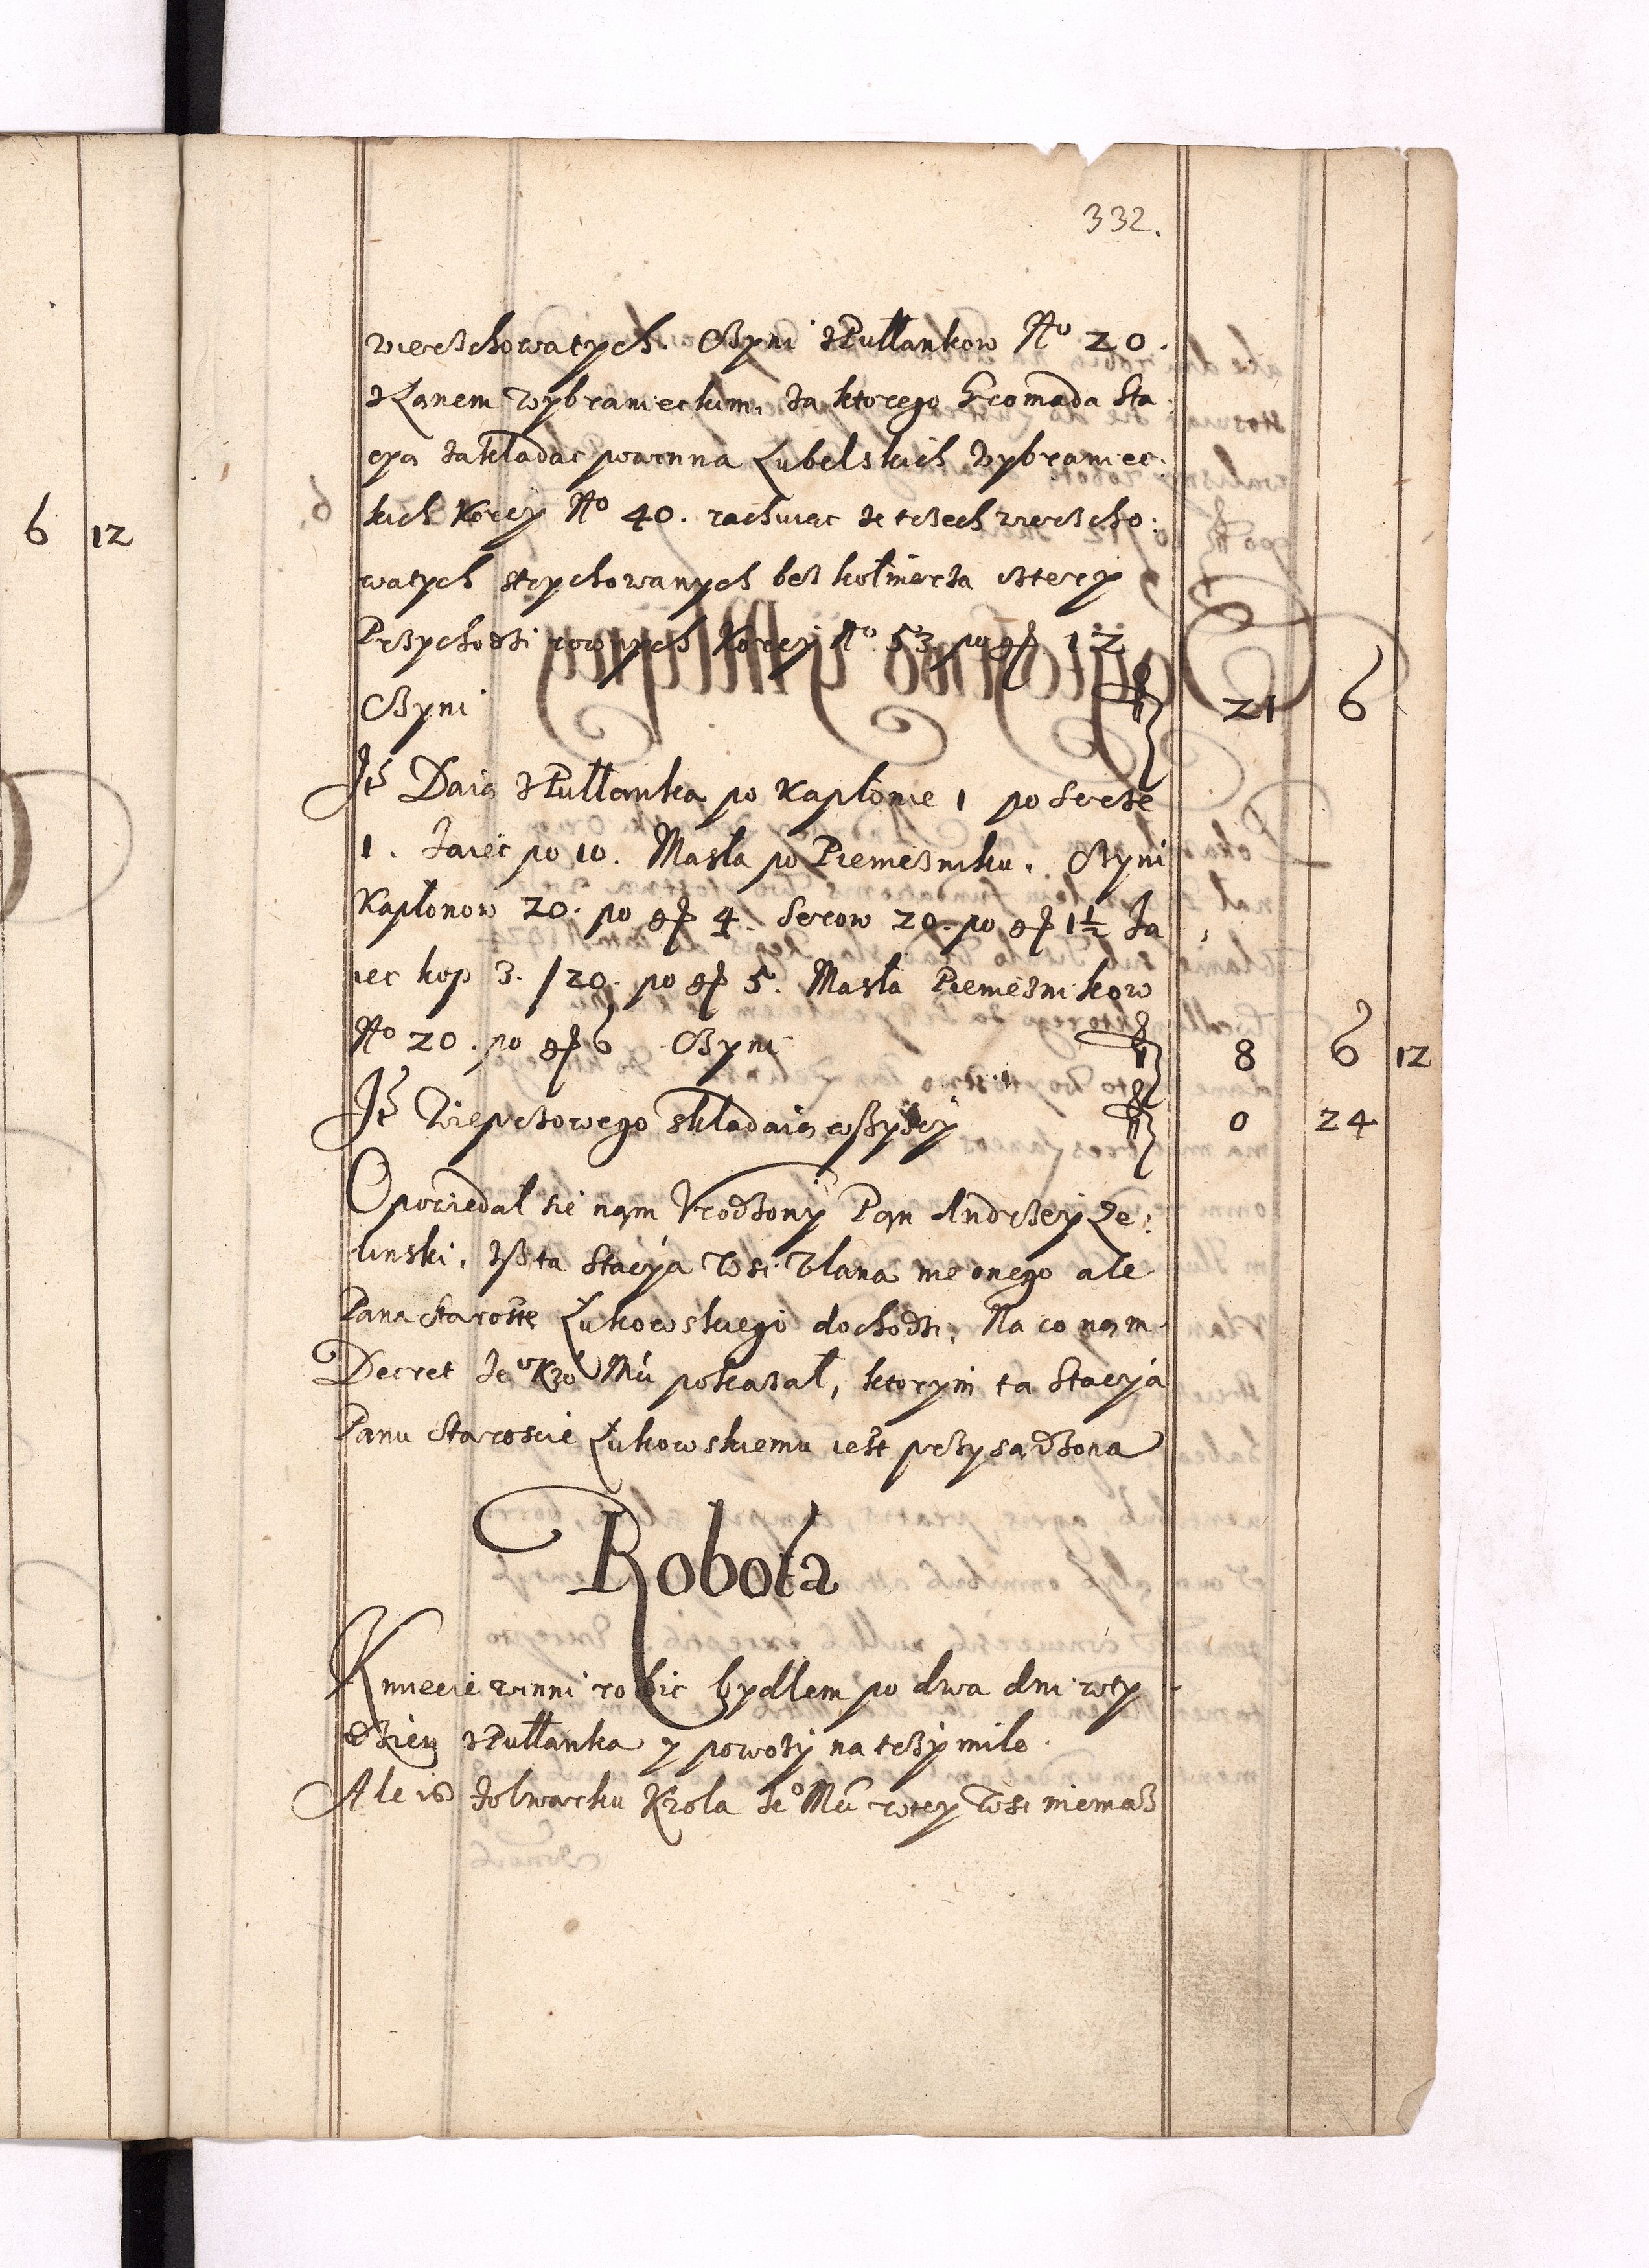 332.
wierzchowatych. Czyni z Pułłankow No 20.
z Łanem wybranieckim, za ktorego Gromada sta
cyą zakładac powinna Lubelskich wybraniec:
kich Korcy No 40. rachuiąc ze trzech wierzcho:
watych strychowanych bez kołnierza cztery
Przychodzi rownych Korcy No 53. po gr 12
Czyni fl 21 6
Jt Daią z Pułłanka po Kapłonie 1 po Serze
1. Jaiec po 10. Masła po Pieniezniku. Czyni
Kapłonow 20. po gr 4. Serow 20. po gr 1½ Ja
iec kop 3. /20. po gr 5. Masła Pienieznikow
No 20. po gr 6 Czyni fl 8 6 12
Jt Wieprzowego składaią wszyscy fl 0 24
Opowiedał sie nąm Vrodzony Pąn Andrzey Ze:
linski, Isz ta Stacya Wsi Vlana nie onego ale
Pana Staroste Łukowskiego dochodzi, Na co nąm
Decret Jeo Kro Mći pokazał, ktorym ta Stacya
Panu Staroscie Łukowskiemu iest przysądzona
Robota
Kmiecie winni robic bydłem po dwa dni w ty
dzien z Pułłanka y powozy na trzy mile.
Ale isz folwarku Krola Jeo Mći w tey Wsi niemasz
6 12